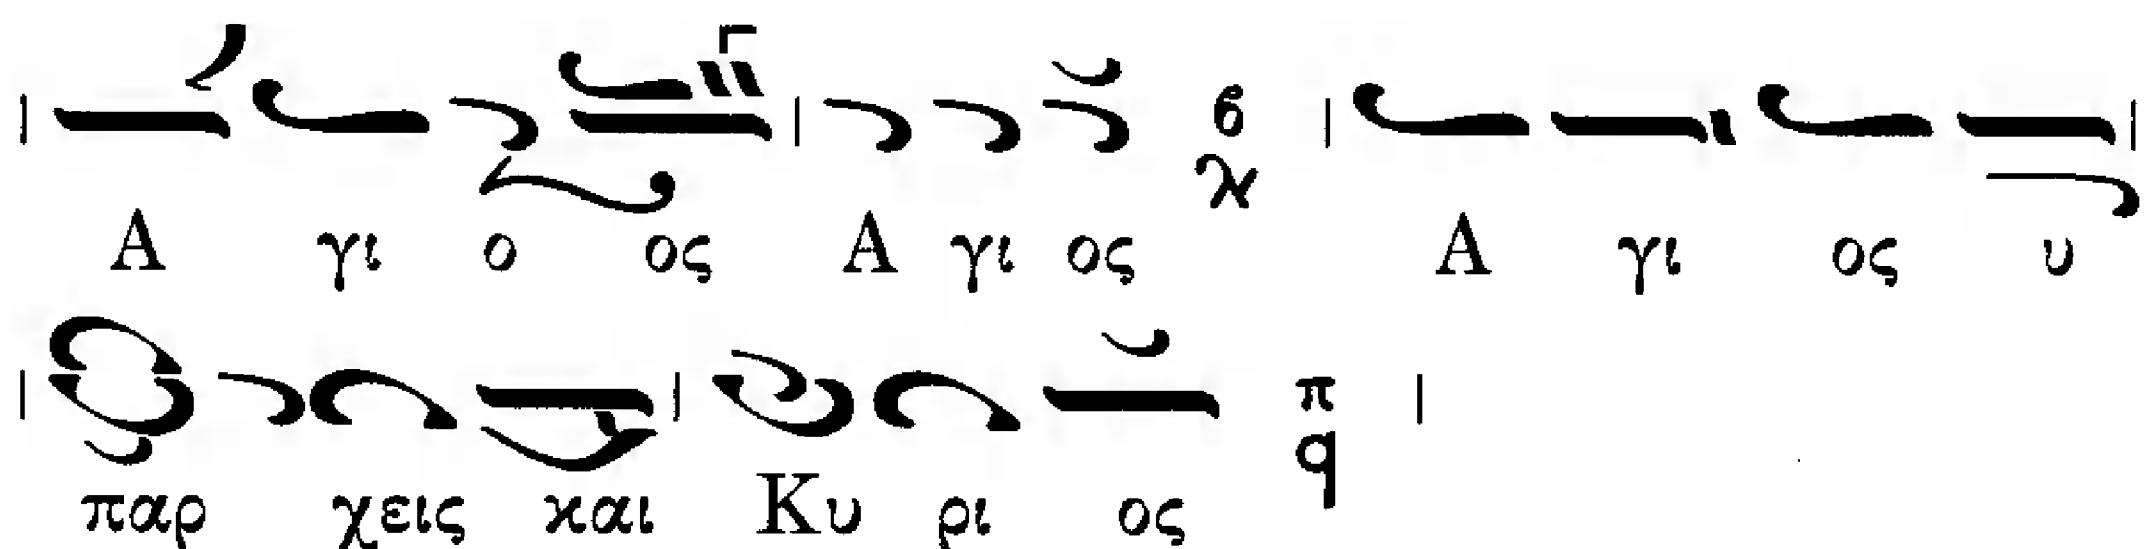 Α γι ο ος Α γι ος β Α γι ος υ
παρ χεις και Κυ ρι ος π q